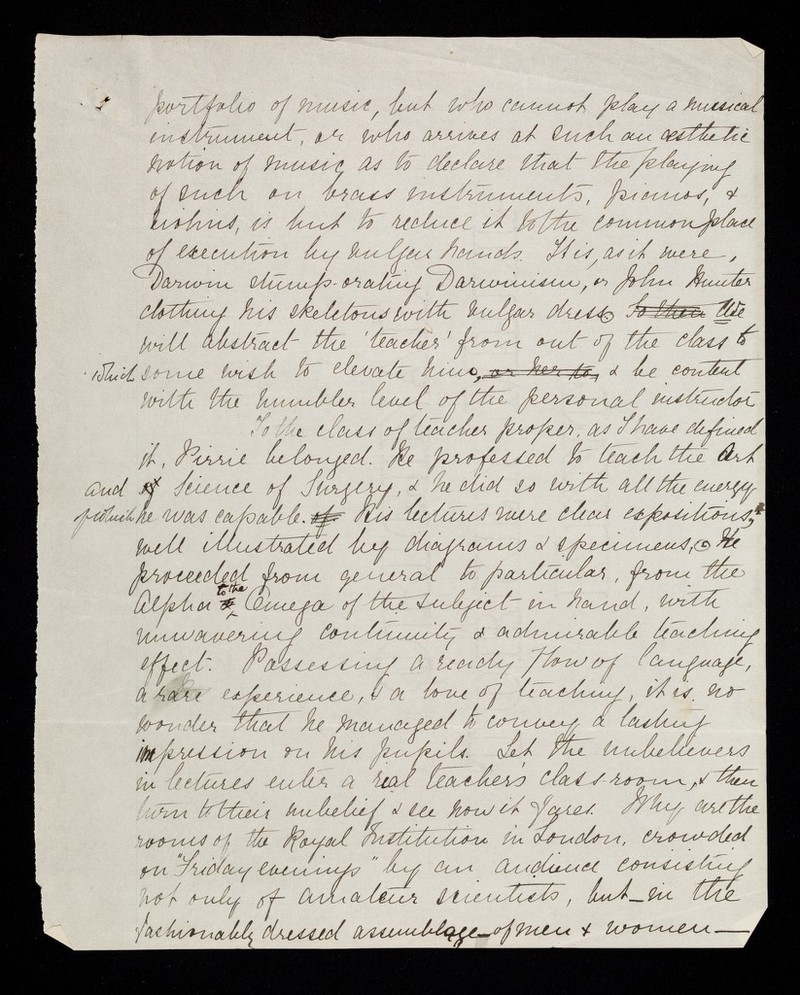 portfolio of music, but who cannot play a musical
instrument, or who arrives at such an æsthetic
notion of music as to declare that the playing
of such on brass instruments, pianos, &
violins, is but to reduce it to the common place
of execution by vulgar hands. It is, as it were,
Darwin stump-orating Darwinism, or John Hunter
clothing his skeletons with vulgar dress. So then We
will abstract the 'teacher' from out of the class to
which some wish to elevate him, or her to, & be content
with the humbler level of the personal instructor
To the class of teacher proper, as I have defined
it, Pirrie belonged. He professed to teach the Art
and Science of Surgery, & he did so with all the energy
of which he was capable. His lectures were clear expositions,
well illustrated by diagrams & specimens. He
proceeded from general to particular, from the
Alpha to the Omega of the subject in hand, with
unwavering continuity & admirable teaching
effect. Possessing a ready flow of language,
a rare experience, & a love of teaching, it is no
wonder that he managed to convey a lasting
impression on his pupils. Let the unbelievers
in lectures enter a real teacher's class-room, & then
turn to their unbelief & see how it fares. Why are the
rooms of the Royal Institution in London, crowded
on "Friday evenings" by an audience consisting
not only of amateur scientists, but—in the
fashionably dressed assemblage—of men & women—